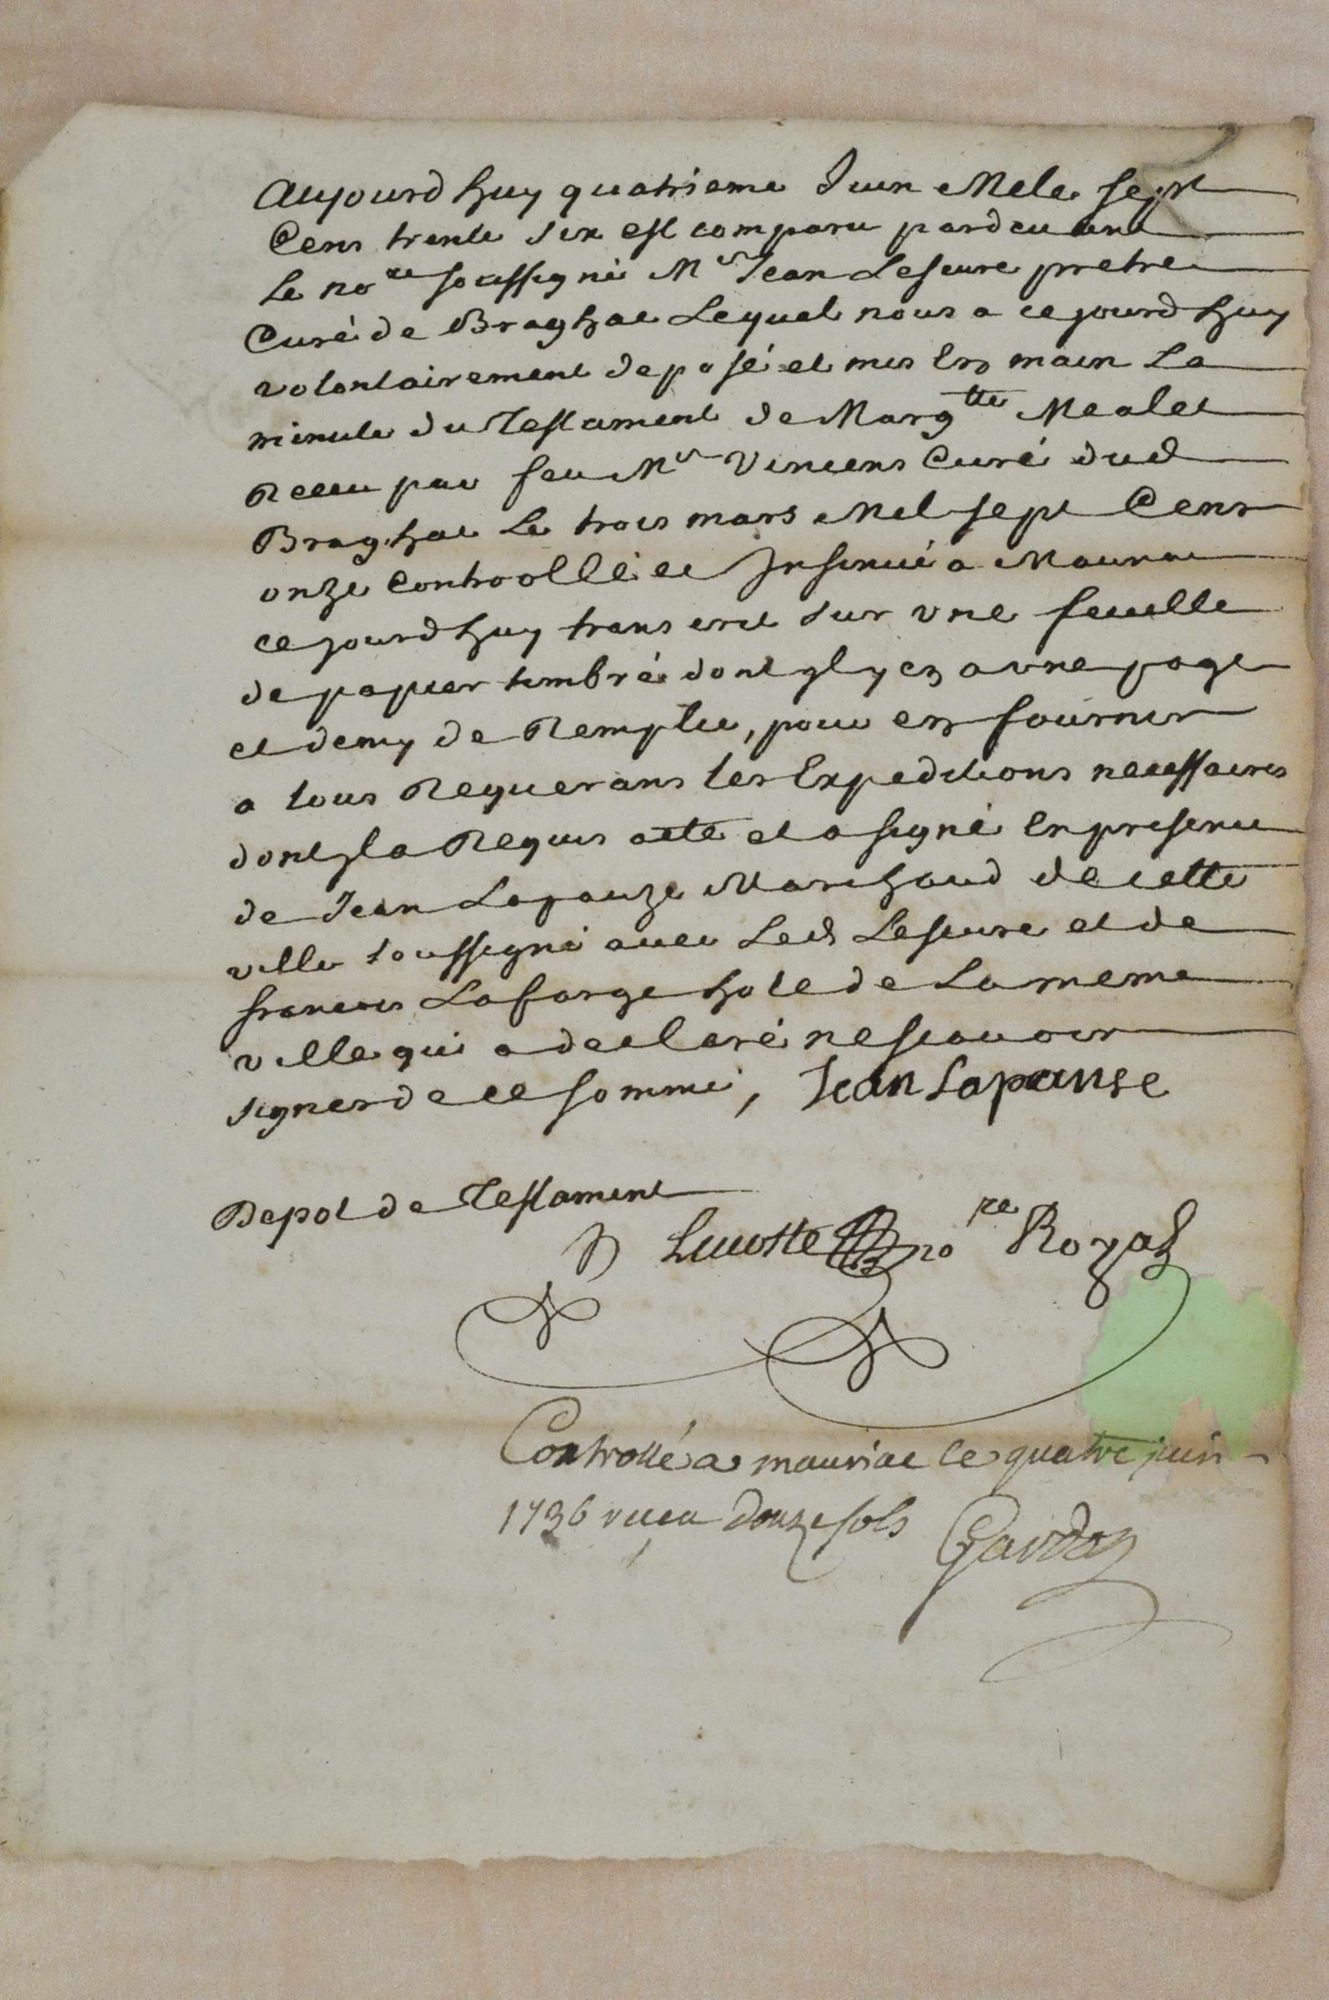 Aujourdhuy quatrieme Juin Mele sept
Cens trente six est comparu pardevant
Le no.re soussigné Mr Jean Lescure pretre
Curé de Braghac Lequel nous a cejourdhuy
volontairement deposé et mis En main La
minute du Testament de Margtte Mealet
Receu par feu Mr Vincens Curé dud
Braghac Le trois mars Mil sept Cens
onze Controollé et Insinué a Mauriac
cejourdhuy transcrit sur une feuille
de papier timbré dont yl y en a une page
et demy de Remplie, pour en fournir
a tous Requerans les Expeditions necessaires
dont yl a Requis acte et a signé En presence
de Jean Lapauze Marchand de cette
ville soussigné avec Led Lescure et de
francois Lafarge hote de La meme
ville qui a declaré ne scavoir
signer de ce sommé, Jean Lapause
Depot de Testament
Lacoste no.re Royal
Controllé a mauriac le quatre juin
1736 receu douze sols